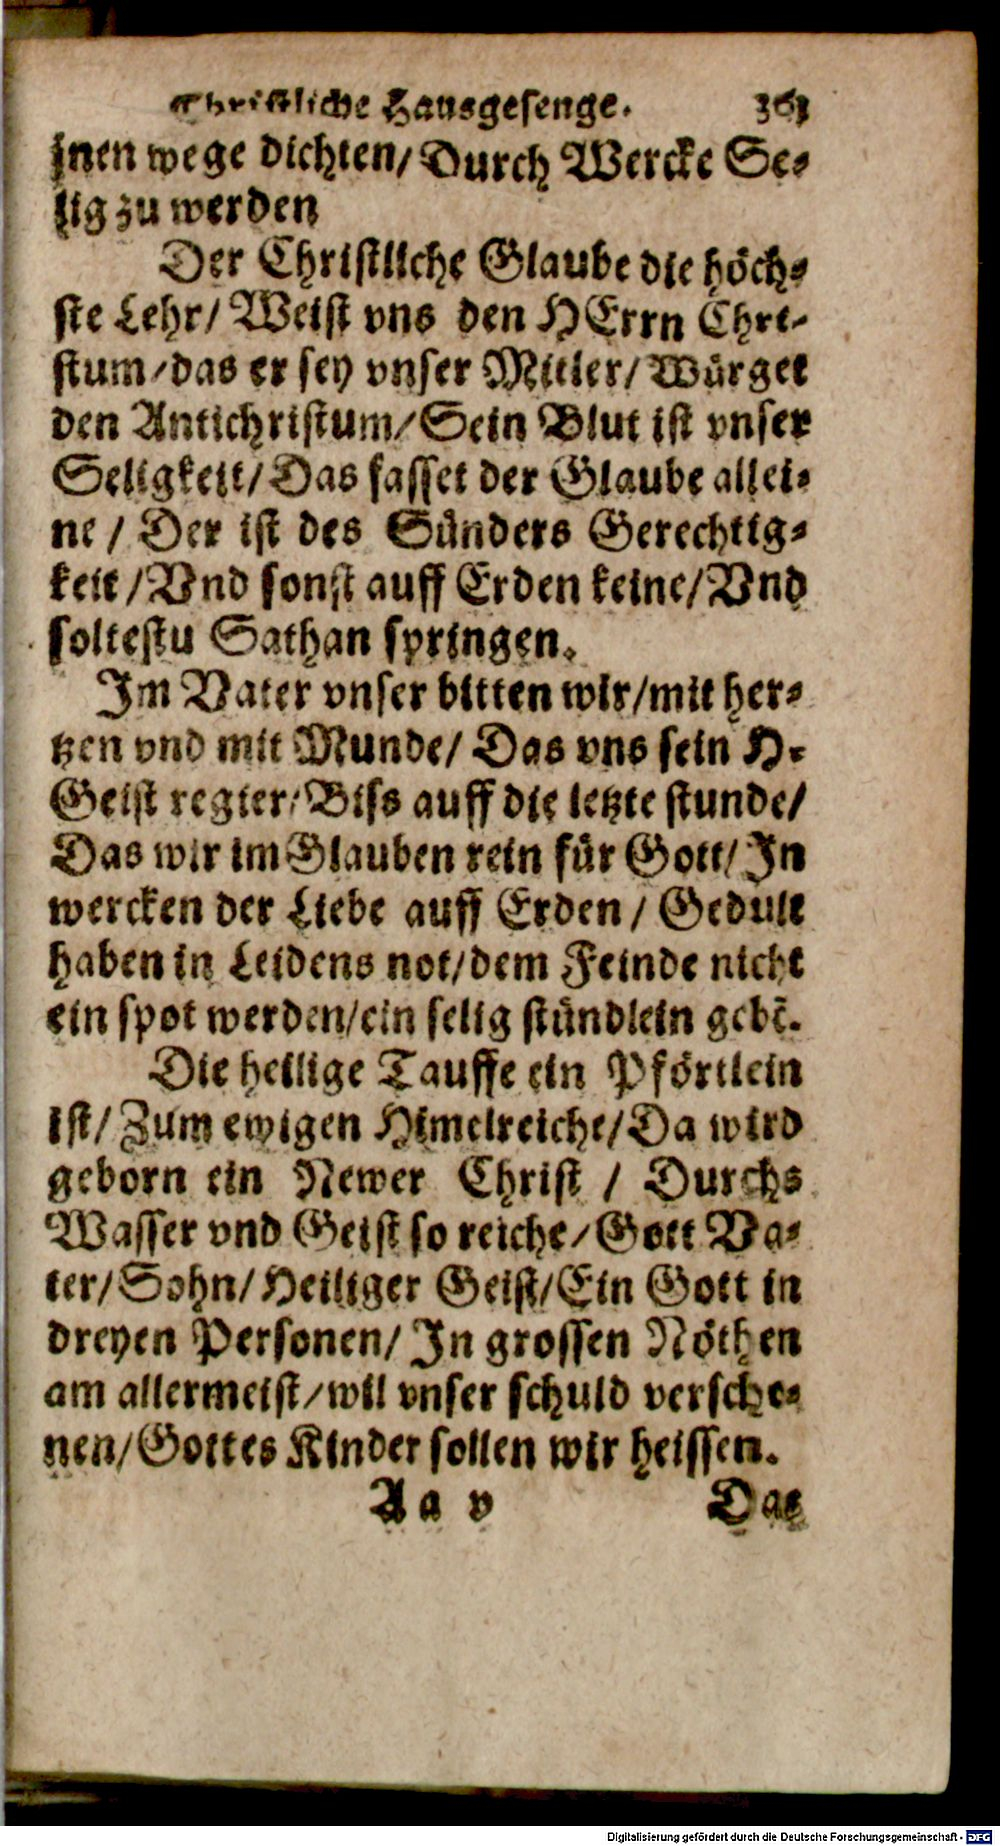 Christliche Hausgesenge. 361
jnen wege dichten/ Durch Wercke Se-
lig zu werden
Der Christliche Glaube die höch-
ste Lehr/ Weist vns den HErrn Chri-
stum/das er sey vnser Mitler/ Würget
den Antichristum/ Sein Blut ist vnser
Seligkeit/ Das fasset der Glaube allei-
ne / Der ist des Sünders Gerechtig-
keit /Vnd sonst auff Erden keine/ Vnd
soltestu Sathan springen.
Im Vater vnser bitten wir/mit her-
tzen vnd mit Munde/ Das vns sein H.
Geist regier/ Biss auff die letzte stunde/
Das wir im Glauben rein für Gott/ In
wercken der Liebe auff Erden / Gedult
haben in Leidens not/dem Feinde nicht
ein spot werden/ein selig stündlein gebē.
Die heilige Tauffe ein Pförtlein
ist/ Zum ewigen Himelreiche/Da wird
geborn ein Newer Christ / Durchs
Wasser vnd Geist so reiche/Gott Va-
ter/Sohn/Heiliger Geist/Ein Gott in
dreyen Personen/ In grossen Nöthen
am allermeist/wil vnser schuld verscho-
nen/Gottes Kinder sollen wir heissen.
Aa v Das
Digitalisierung gefördert durch die Deutsche Forschungsgemeinschaft - DFG